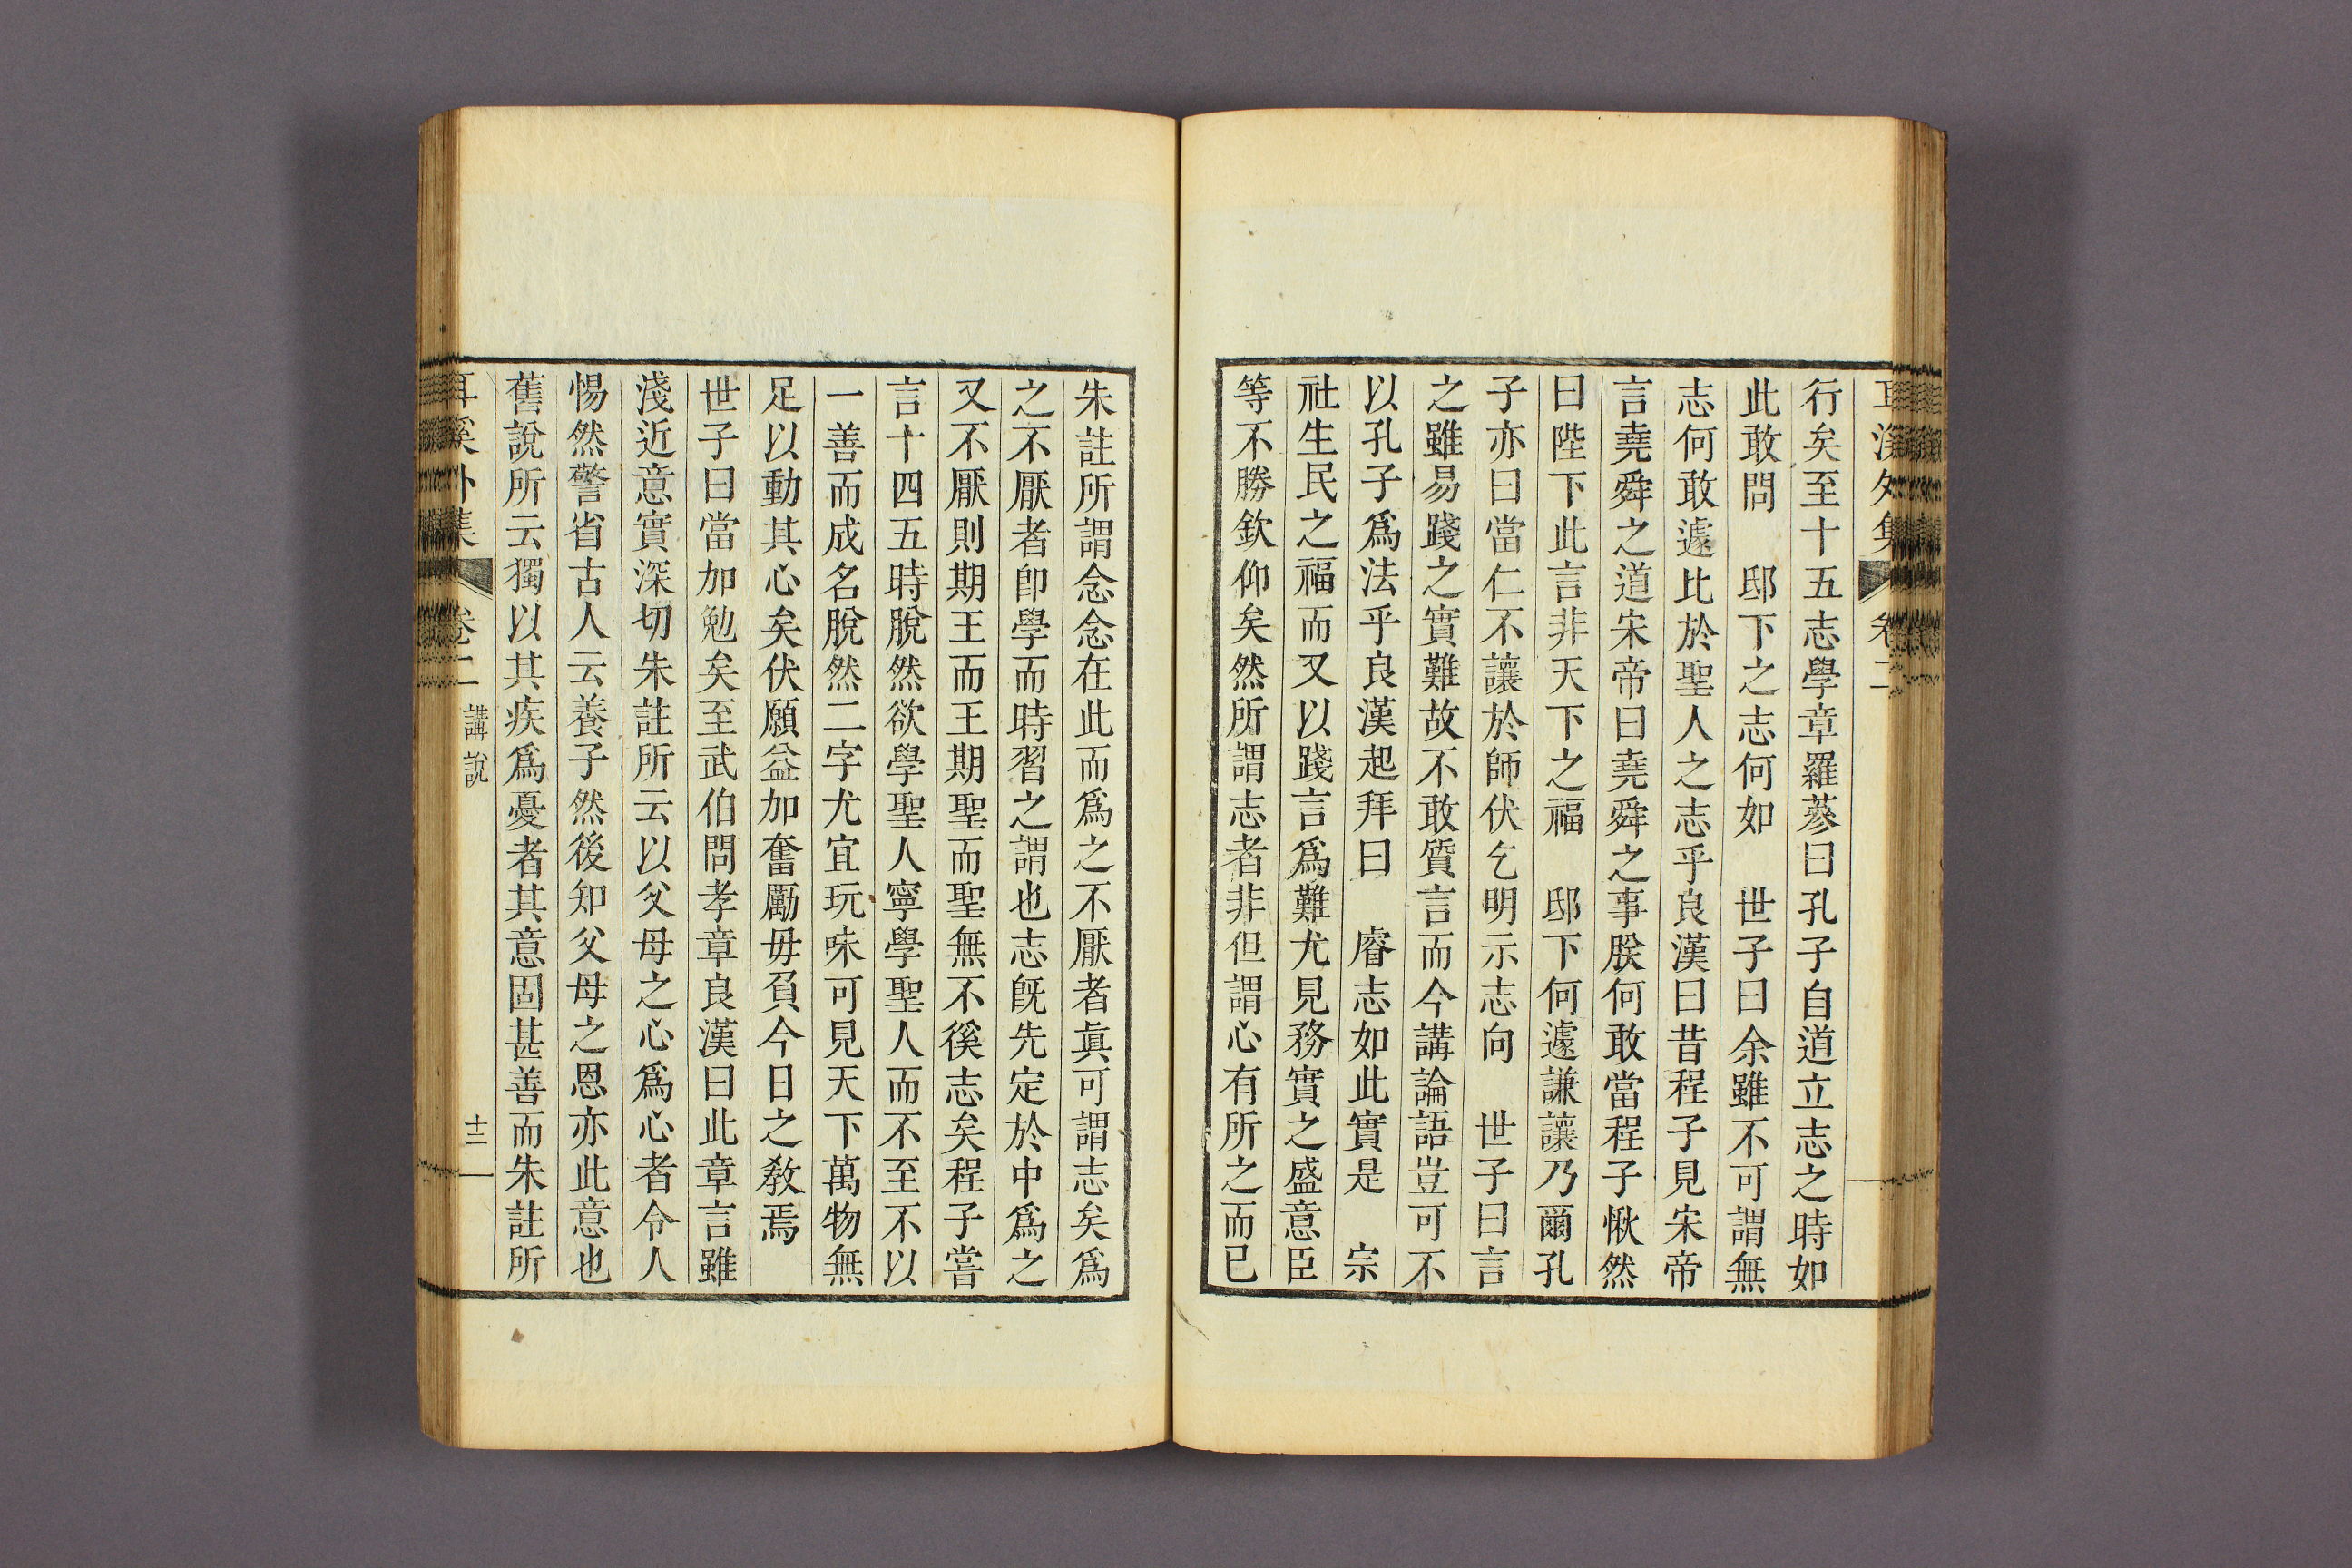 耳溪外集 卷二
行矣至十五志學章羅蔘曰孔子自道立志之時如
此敢問 邸下之志何如 世子曰余雖不可謂無
志何敢遽比於聖人之志乎良漢曰昔程子見宋帝
言堯舜之道宋帝曰堯舜之事朕何敢當程子愀然
曰陛下此言非天下之福 邸下何遽謙讓乃爾孔
子亦曰當仁不讓於師伏乞明示志向 世子曰言
之雖易踐之實難故不敢質言而今講論語豈可不
以孔子爲法乎良漢起拜曰 睿志如此實是 宗
社生民之福而又以踐言爲難尤見務實之盛意臣
等不勝欽仰矣然所謂志者非但謂心有所之而已
朱註所謂念念在此而爲之不厭者眞可謂志矣爲
之不厭者卽學而時習之謂也志旣先定於中爲之
又不厭則期王而王期聖而聖無不徯志矣程子嘗
言十四五時脫然欲學聖人寧學聖人而不至不以
一善而成名脫然二字尤宜玩味可見天下萬物無
足以動其心矣伏願益加奮勵毋負今日之敎焉
世子曰當加勉矣至武伯問孝章良漢曰此章言雖
淺近意實深切朱註所云以父母之心爲心者令人
惕然警省古人云養子然後知父母之恩亦此意也
舊說所云獨以其疾爲憂者其意固甚善而朱註所
耳溪外集 卷二 講說 十三